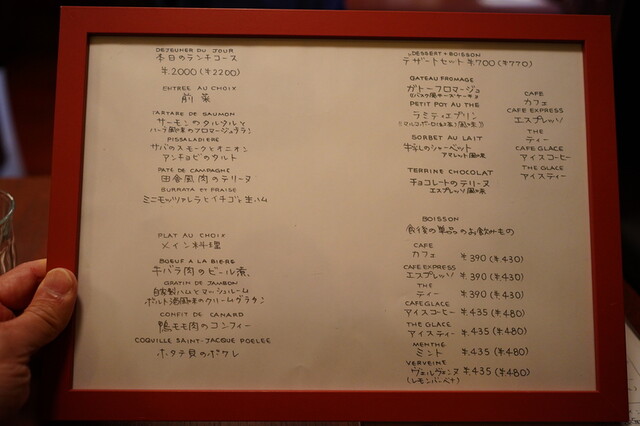 DEJEUNER DU JOUR
本日のランチコース
¥2000 (¥2200)
ENTREE AU CHOIX
前菜
TARTARE DE SAUMON
サーモンのタルタルと
ハーブ風味のフロマージュブラン
PISSALADIERE
サバのスモークとオニオン
アンチョビのタルト
PATE DE CAMPAGNE
田舎風肉のテリーヌ
BURRATA ET FRAISE
ミニモッツァレラとイチゴと生ハム
PLAT AU CHOIX
メイン料理
BOEUF A LA BIERE
牛バラ肉のビール煮
GRATIN DE JAMBON
自家製ハムとマッシュルーム
ポルト酒風味のクリームグラタン
CONFIT DE CANARD
鴨モモ肉のコンフィー
COQUILLE SAINT-JACQUE POELEE
ホタテ貝のポワレ
DESSERT + BOISSON
デザートセット ¥700 (¥770)
GATEAU FROMAGE
ガトーフロマージュ
(バスク風チーズケーキ)
PETIT POT AU THE
SORBET AU LAIT
牛乳のシャーベット
アマレット風味
TERRINE CHOCOLAT
チョコレートのテリーヌ
エスプレッソ風味
CAFE
カフェ
CAFE EXPRESS
エスプレッソ
THE
ティー
CAFE GLACE
アイスコーヒー
THE GLACE
アイスティー
BOISSON
食後の単品のお飲みもの
CAFE
カフェ ¥390 (¥430)
CAFE EXPRESS
エスプレッソ ¥390 (¥430)
THE
ティー ¥390 (¥430)
CAFE GLACE
アイスコーヒー ¥435 (¥480)
THE GLACE
アイスティー ¥435 (¥480)
MENTHE
ミント ¥435 (¥480)
VERVEINE
ヴェルヴェンヌ ¥435 (¥480)
(レモンバーベナ)